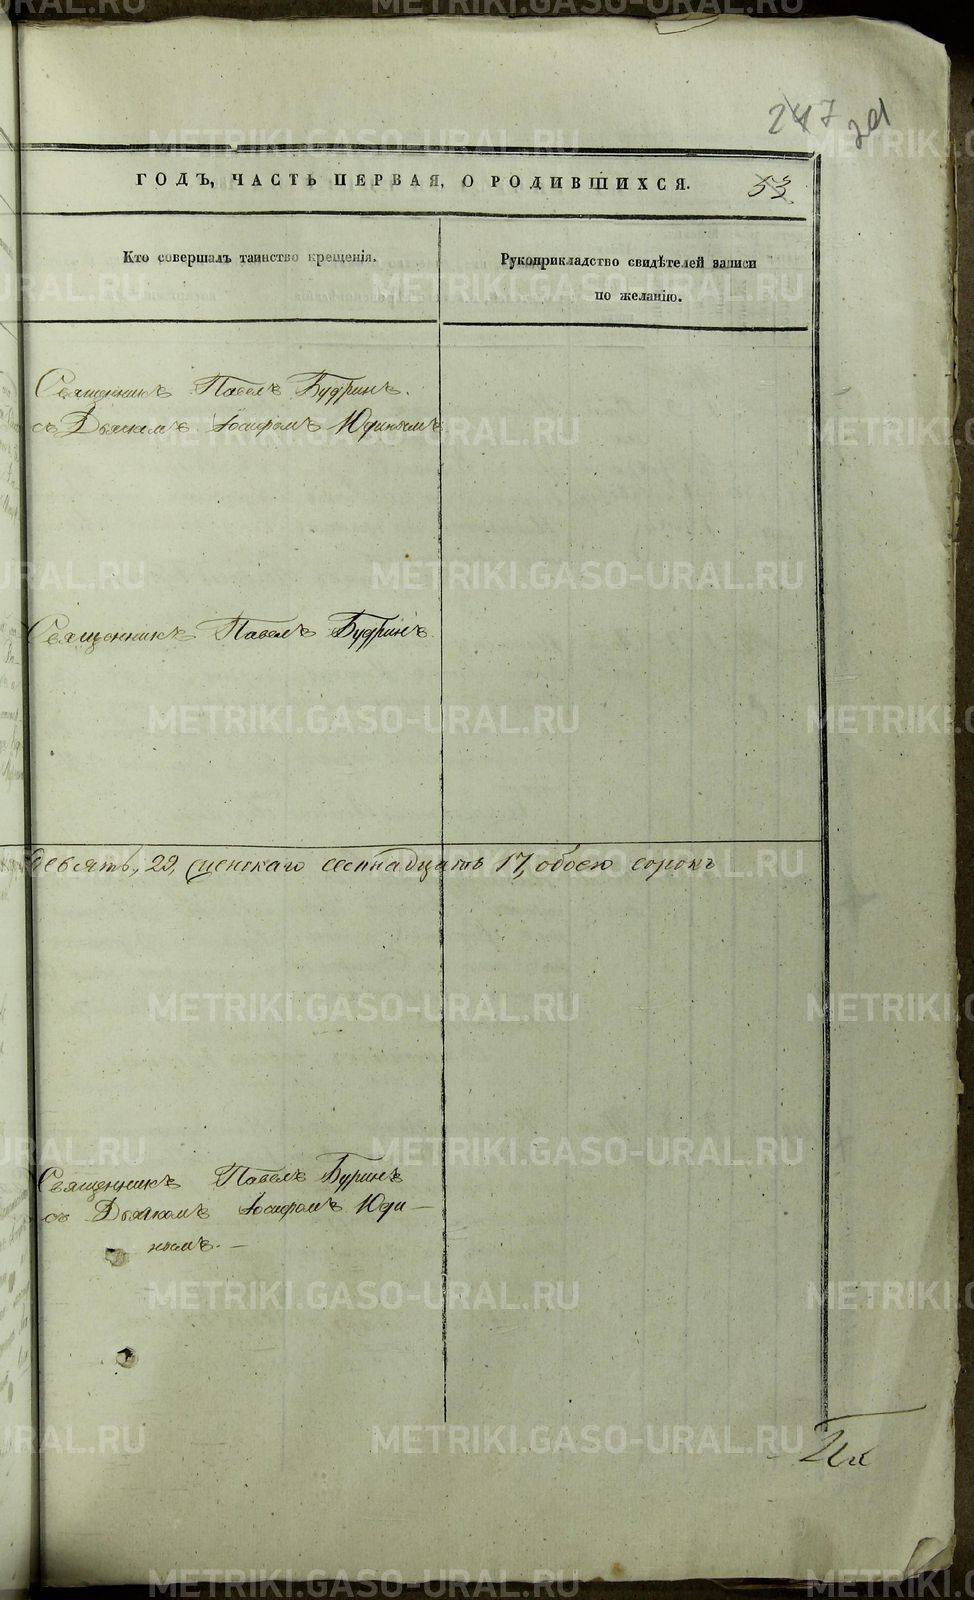 247
ГОДЪ, ЧАСТЬ ПЕРВАЯ, О РОДИВШИХСЯ.
53
Кто совершалъ таинство крещенія.
Рукоприкладство свидѣтелей записи
по желанію.
Священникъ Павелъ Будринъ.
съ Дьячкомъ Іосифомъ Юдинымъ
Священникъ Павелъ Будринъ.
девять, 29, женскаго семнадцать 17, обоего сорокъ
Священникъ Павелъ Будринъ
съ Дьячкомъ Іосифомъ Юди-
нымъ.-
METRIKI.GASO-URAL.RU